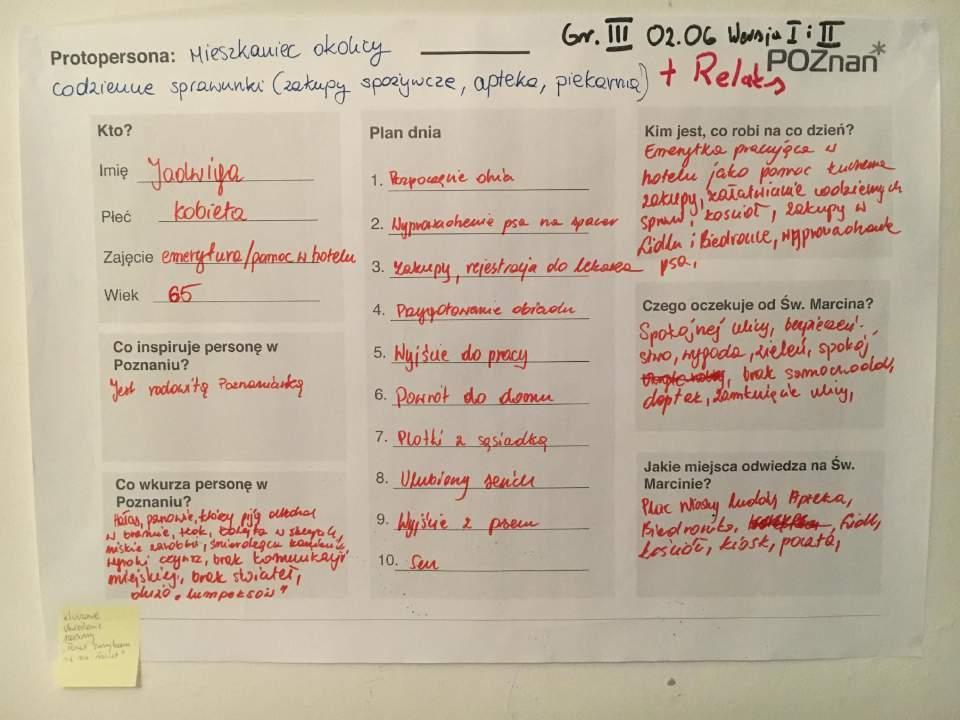 Gr. III 02.06 Wersja I i II
Protopersona: Mieszkaniec okolicy
POZnan*
codzienne sprawunki (zakupy spożywcze, apteka, piekarnia) + Relaks
Kto?
Imię Jadwiga
Płeć kobieta
Zajęcie emerytura/pomoc w hotelu
Wiek 65
Co inspiruje personę w
Poznaniu?
Jest rodowitą Poznanianką
Co wkurza personę w
Poznaniu?
Hałas, panowie, którzy piją alkohol
w bramie, tłok, kolejka w sklepach,
niskie zarobki, śmierdząca kamienica
wysoki czynsz, brak komunikacji
miejskiej, brak świateł,
dużo "lumpeksów"
Plan dnia
1. Rozpoczęcie dnia
2. Wyprowadzenie psa na spacer
3. Zakupy, rejestracja do lekarza
4. Przygotowanie obiadu
5. Wyjście do pracy
6. Powrót do domu
7. Plotki z sąsiadką
8. Ulubiony serial
9. Wyjście z psem
10. Sen
Kim jest, co robi na co dzień?
Emerytka pracująca w
hotelu jako pomoc kuchenna
zakupy, załatwianie codziennych
spraw, kościół, zakupy w
Lidlu i Biedronce, wyprowadzanie
psa,
Czego oczekuje od Św. Marcina?
Spokojnej ulicy, bezpieczeń-
stwo, wygoda, zieleń, spokój
, brak samochodów,
deptak, zamknięcie ulicy,
Jakie miejsca odwiedza na Św.
Marcinie?
Plac Wiosny Ludów, Apteka,
Biedronka, Lidl,
kościół, kiosk, poczta,
kluczowe